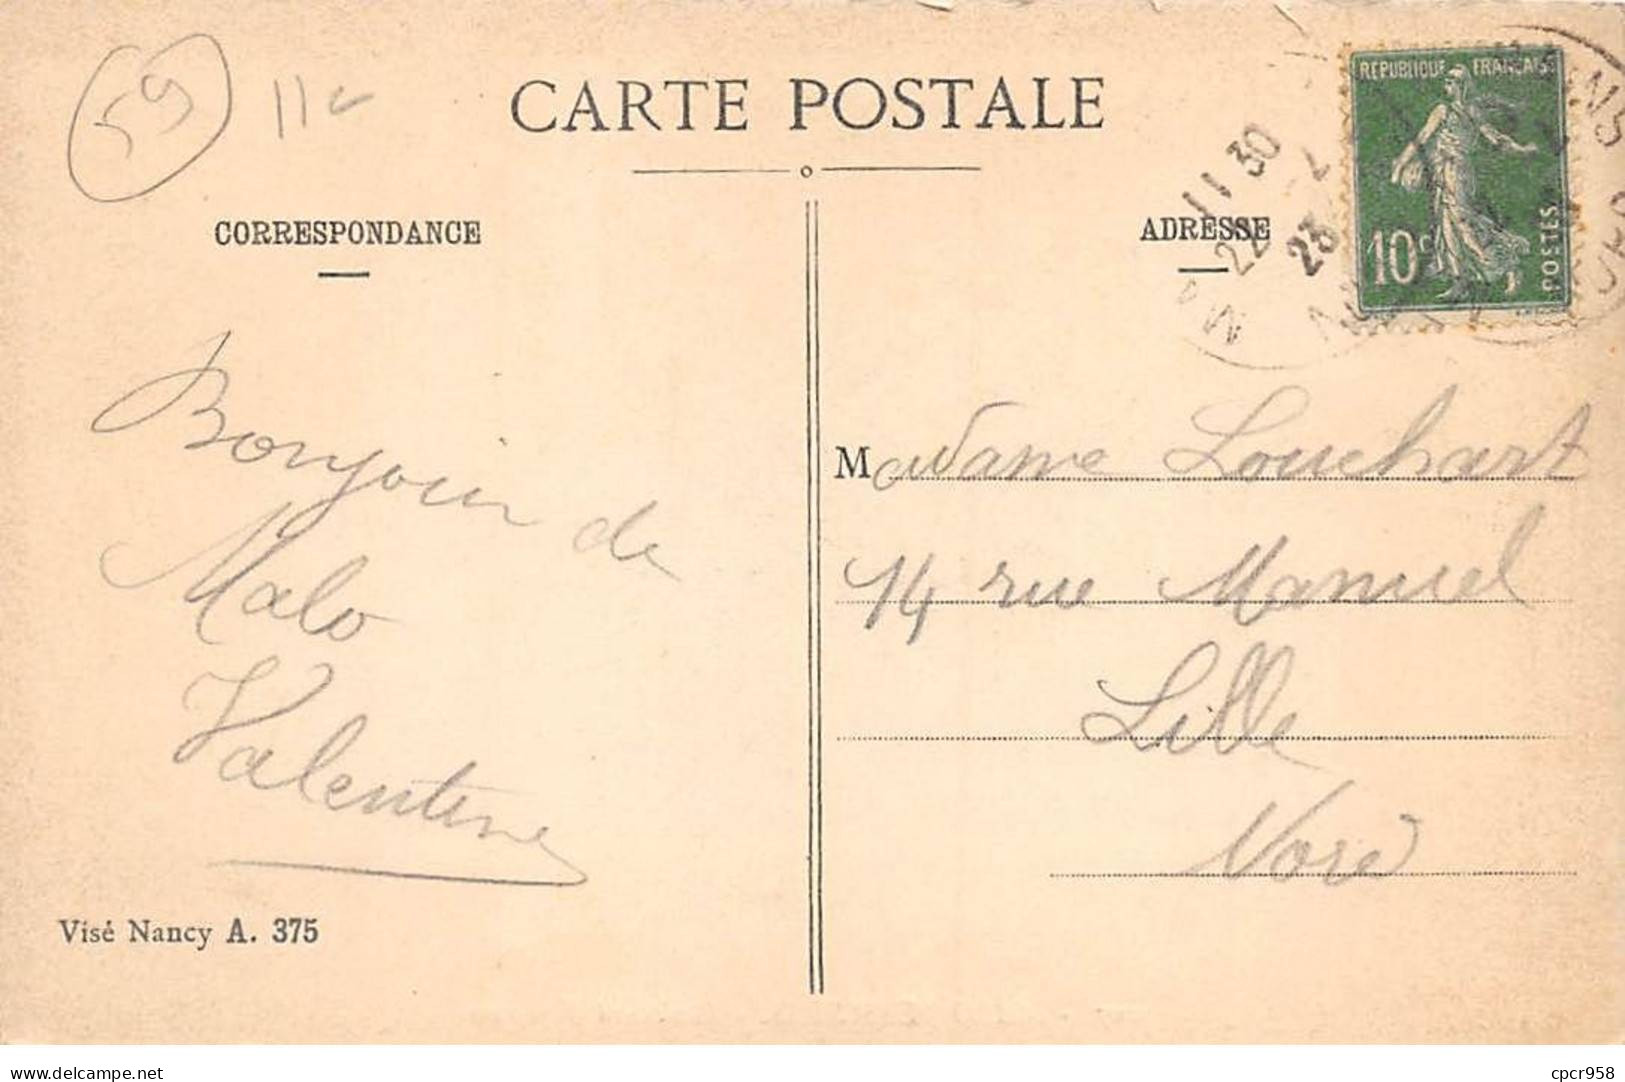 59
11
CARTE POSTALE
CORRESPONDANCE
ADRESSE
REPUBLIQUE FRANÇAISE
10c
POSTES
11 30
22
23
Bonjour de
Malo
Valentine
Madame Louchart
14 rue Manuel
Lille
Nord
Visé Nancy A. 375
delcampe.net
cpcr958